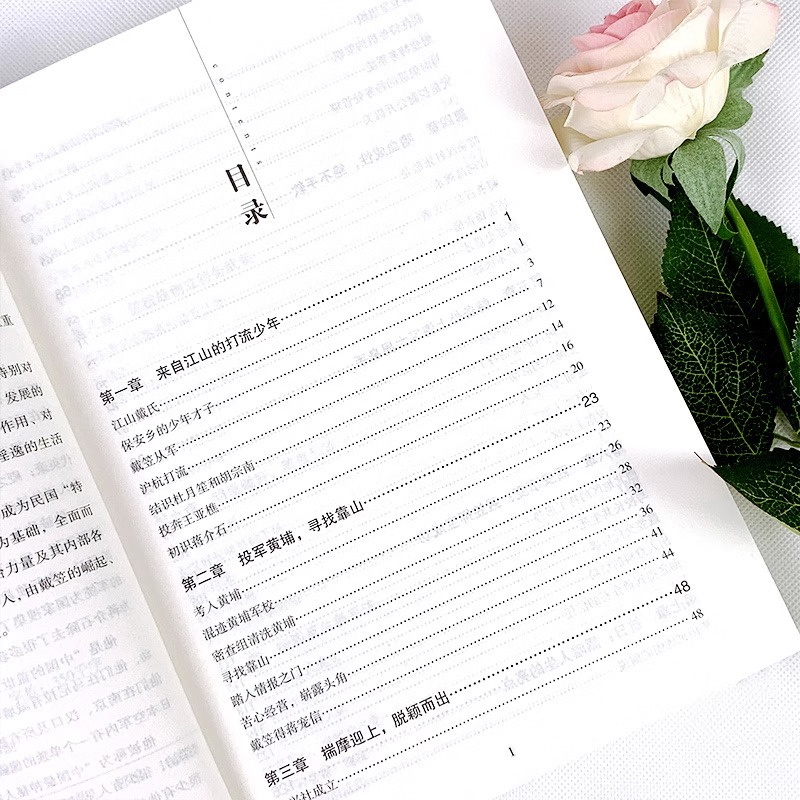 重
特别对
发展的
作用、对
淫逸的生活
成为民国“特
为基础，全面而
治力量及其内部各
人，由戴笠的崛起、
contents
目录
第一章 来自江山的打流少年 1
江山戴氏 1
保安乡的少年才子 3
戴笠从军 7
沪杭打流 12
结识杜月笙和胡宗南 14
投奔王亚樵 16
初识蒋介石 20
第二章 投军黄埔，寻找靠山 23
考入黄埔 23
混迹黄埔军校 26
密查组清洗黄埔 28
寻找靠山 32
踏入情报之门 36
苦心经营，崭露头角 41
戴笠得蒋宠信 44
第三章 揣摩迎上，脱颖而出 48
兴社成立 48
1